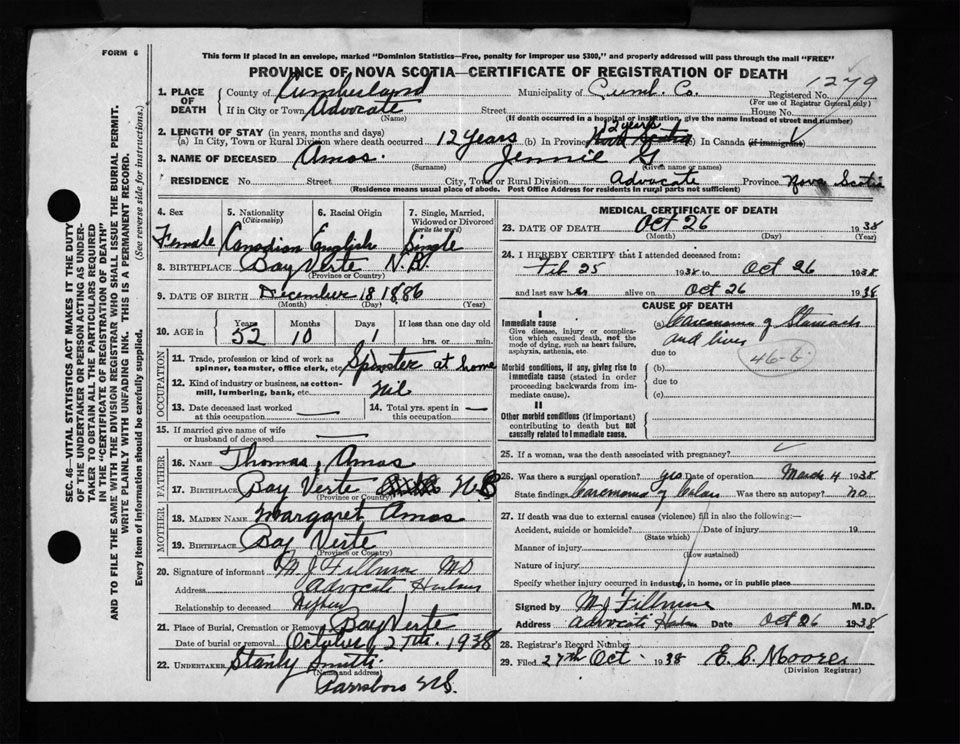 FORM 6
This form if placed in an envelope, marked "Dominion Statistics—Free, penalty for improper use $300," and properly addressed will pass through the mail "FREE"
PROVINCE OF NOVA SCOTIA—CERTIFICATE OF REGISTRATION OF DEATH
1279
1. PLACE OF DEATH County of Cumberland Municipality of Cumb. Co. Registered No.
(For use of Registrar General only)
If in City or Town Advocate Street House No.
(Name) (If death occurred in a hospital or institution, give the name instead of street and number)
2. LENGTH OF STAY (in years, months and days) 12 years
(a) In City, Town or Rural Division where death occurred 12 Years (b) In Province Nova Scotia (c) In Canada (if immigrant)
3. NAME OF DECEASED Amos. Jennie G
(Surname) (Given name or names)
RESIDENCE No. Street City, Town or Rural Division Advocate Province Nova Scotia
(Residence means usual place of abode. Post Office Address for residents in rural parts not sufficient)
4. Sex 5. Nationality (Citizenship) 6. Racial Origin 7. Single, Married, Widowed or Divorced (write the word)
Female Canadian English Single
8. BIRTHPLACE Bay Verte N.B.
(Province or Country)
9. DATE OF BIRTH December 18 1886
(Month) (Day) (Year)
10. AGE in Years Months Days If less than one day old
52 10 1 hrs. or min.
OCCUPATION
11. Trade, profession or kind of work as spinner, teamster, office clerk, etc. Spinster at home
12. Kind of industry or business, as cotton-mill, lumbering, bank, etc. Nil
13. Date deceased last worked at this occupation —
14. Total yrs. spent in this occupation —
15. If married give name of wife or husband of deceased —
FATHER
16. NAME Thomas Amos
17. BIRTHPLACE Bay Verte N.B
(Province or Country)
MOTHER
18. MAIDEN NAME Margaret Amos
19. BIRTHPLACE Bay Verte
(Province or Country)
20. Signature of informant M J Fillmore MD
Address Advocate Harbor
Relationship to deceased Nephew
21. Place of Burial, Cremation or Removal Bay Verte
Date of burial or removal October 27th. 1938
22. UNDERTAKER Stanly Smith
(Name and address)
Parrsboro N.S.
MEDICAL CERTIFICATE OF DEATH
23. DATE OF DEATH Oct 26 1938
(Month) (Day) (Year)
24. I HEREBY CERTIFY that I attended deceased from:
Feb 25 1938 to Oct 26 1938
and last saw her alive on Oct 26 1938
CAUSE OF DEATH
I
Immediate cause
Give disease, injury or complication which caused death, not the mode of dying, such as heart failure, asphyxia, asthenia, etc.
(a) Carconoma of Stomach
and liver
due to
46-b
Morbid conditions, if any, giving rise to immediate cause (stated in order proceeding backwards from immediate cause).
(b)
due to
(c)
II
Other morbid conditions (if important) contributing to death but not causally related to immediate cause.
25. If a woman, was the death associated with pregnancy?
26. Was there a surgical operation? yes Date of operation March 4 1938
State findings Carconoma of Was there an autopsy? no
27. If death was due to external causes (violence) fill in also the following:—
Accident, suicide or homicide? Date of injury 19
(State which)
Manner of injury
(How sustained)
Nature of injury
Specify whether injury occurred in industry, in home, or in public place
Signed by M J Fillmore M.D.
Address Advocate Harbor Date Oct 26 1938
28. Registrar's Record Number
29. Filed 27th Oct 1938 E. C. Moores
(Division Registrar)
SEC. 46—VITAL STATISTICS ACT MAKES IT THE DUTY
OF THE UNDERTAKER OR PERSON ACTING AS UNDERTAKER TO OBTAIN ALL THE PARTICULARS REQUIRED
IN THE "CERTIFICATE OF REGISTRATION OF DEATH"
AND TO FILE THE SAME WITH THE DIVISION REGISTRAR WHO SHALL ISSUE THE BURIAL PERMIT.
WRITE PLAINLY WITH UNFADING INK. THIS IS A PERMANENT RECORD.
Every item of information should be carefully supplied. (See reverse side for instructions.)